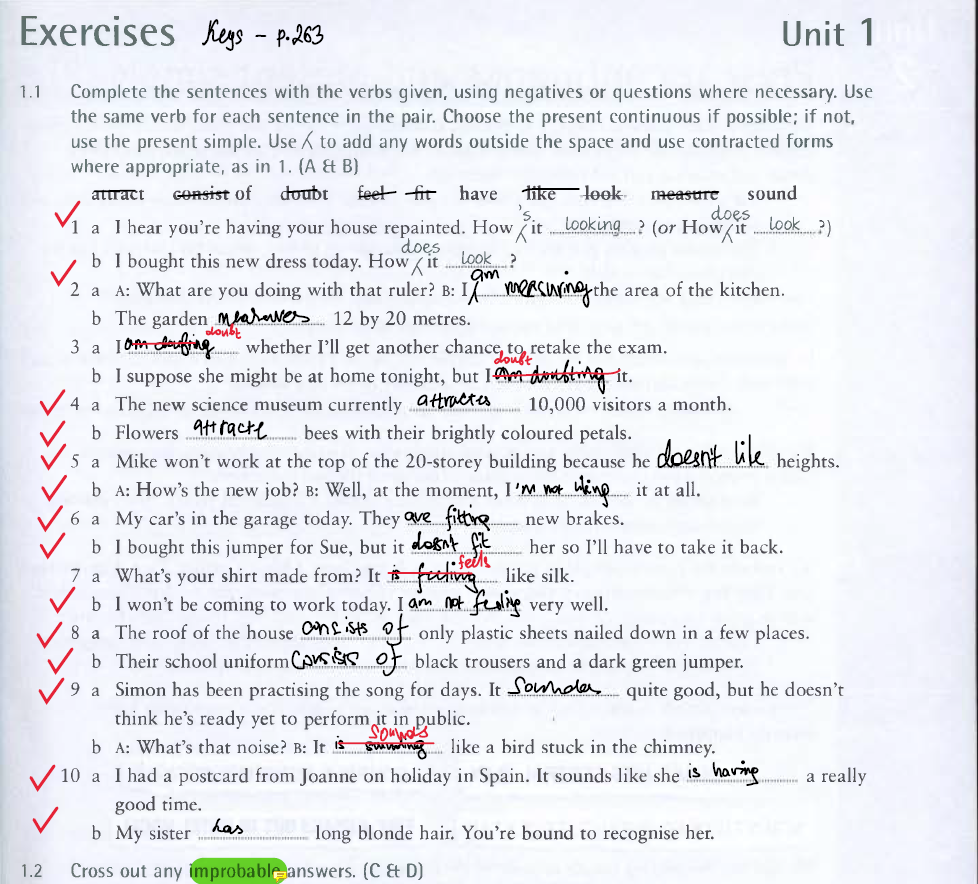 Exercises Keys - p.263 Unit 1
1.1 Complete the sentences with the verbs given, using negatives or questions where necessary. Use
the same verb for each sentence in the pair. Choose the present continuous if possible; if not,
use the present simple. Use ⁁ to add any words outside the space and use contracted forms
where appropriate, as in 1. (A & B)
attract consist of doubt feel fit have like look measure sound
1 a I hear you're having your house repainted. How ⁁'s it looking ? (or How ⁁does it look ?)
b I bought this new dress today. How ⁁does it look ?
2 a A: What are you doing with that ruler? B: I ⁁am measuring the area of the kitchen.
b The garden measures 12 by 20 metres.
3 a I doubt whether I'll get another chance to retake the exam.
b I suppose she might be at home tonight, but I am doubting doubt it.
4 a The new science museum currently 10,000 visitors a month.
b Flowers bees with their brightly coloured petals.
5 a Mike won't work at the top of the 20-storey building because he doesn't like heights.
b A: How's the new job? B: Well, at the moment, I 'm not liking it at all.
6 a My car's in the garage today. They are fitting new brakes.
b I bought this jumper for Sue, but it doesn't fit her so I'll have to take it back.
7 a What's your shirt made from? It is feeling feels like silk.
b I won't be coming to work today. I am not feeling very well.
8 a The roof of the house consists of only plastic sheets nailed down in a few places.
b Their school uniform consists of black trousers and a dark green jumper.
9 a Simon has been practising the song for days. It sounds quite good, but he doesn't
think he's ready yet to perform it in public.
b A: What's that noise? B: It is sounding sounds like a bird stuck in the chimney.
10 a I had a postcard from Joanne on holiday in Spain. It sounds like she is having a really
good time.
b My sister has long blonde hair. You're bound to recognise her.
1.2 Cross out any improbable answers. (C & D)